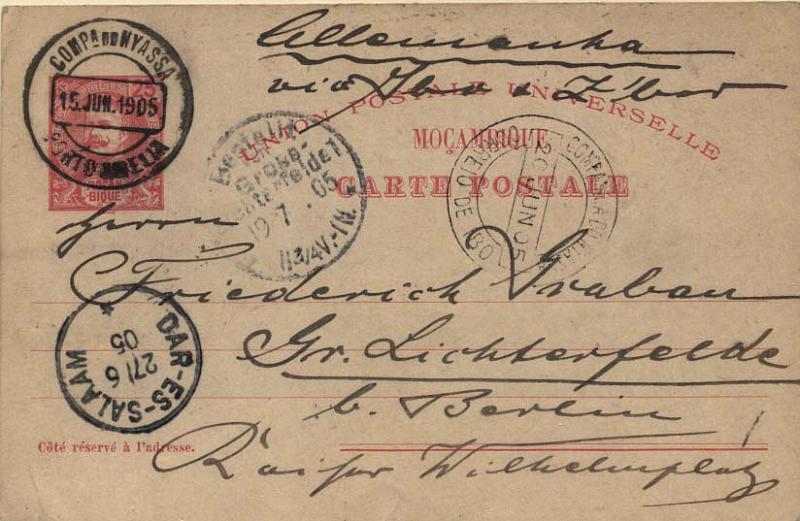 Allemanha
via Ibo & Z'bar
UNION POSTALE UNIVERSELLE
MOÇAMBIQUE
CARTE POSTALE
COMPA DO NYASSA
25
15. JUN. 1905
PORTO AMELIA
BIQUE
Bestellt
Gross-
Lichterfelde 1
19 7. 05
11 3/4 V.-1N.
CORREIO DE IBO
20 JUN 05
DAR-ES-SALAAM
27/6
05
Herrn
Friederich Graban
Gr. Lichterfelde
b. Berlin
Kaiser Wilhelmplatz
Côté réservé à l'adresse.